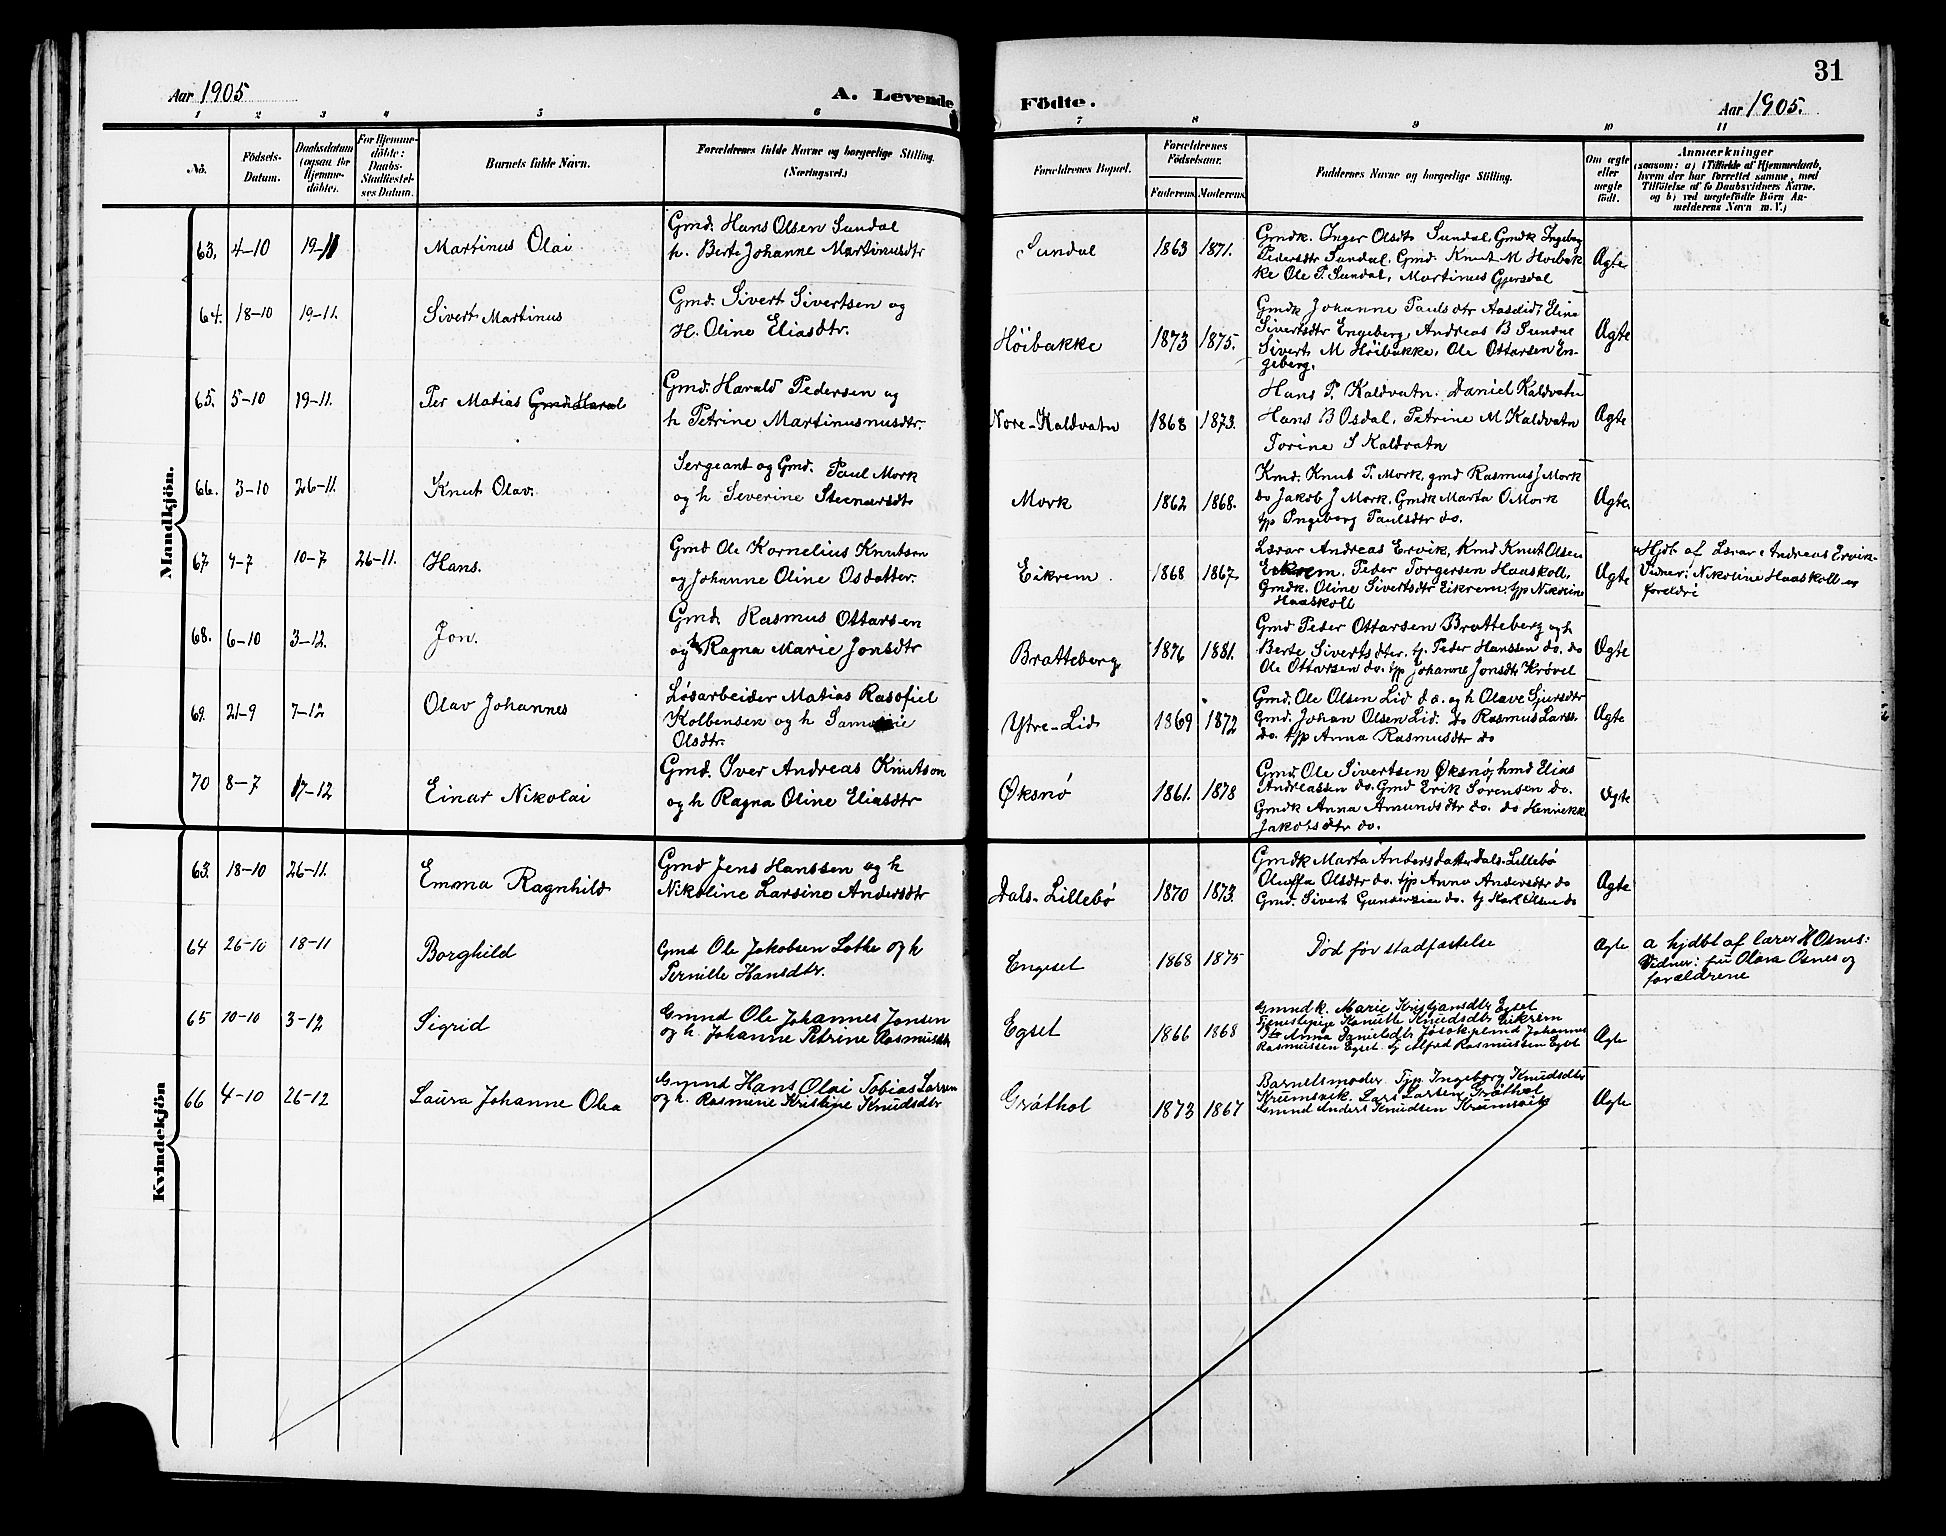 31
Aar 1905
A. Levende
Födte.
Aar 1905.
1 2 3 4 5 6 7 8 9 10 11
No.
Födsels-
Datum.
Daabsdatum
(ogsaa for
Hjemme-
döbte).
For Hjemme-
döbte:
Daabs-
Stadfæstel-
ses Datum.
Barnets fulde Navn.
Forældrenes fulde Navne og borgerlige Stilling.
(Næringsvei.)
Forældrenes Bopæl.
Forældrenes
Födselsaar.
Faderens. Moderens.
Faddernes Navne og borgerlige Stilling.
Om ægte
eller
uægte
født.
Anmærkninger
(saasom: a) i Tilfælde af Hjemmedaab,
hvem der har forrettet samme, med
Tilföielse af to Daabsvidners Navne.
og b) ved uægtefödte Börn An-
melderens Navn m. V.)
Mandkjön.
63. 4-10 19-11 Martinus Olai
Gmd. Hans Olsen Sundal
h. Berte Johanne Martinusdtr
Sundal 1863 1871.
Gmdk. Inger Olsdtr Sundal, Gmdk Ingeborg
Pedersdtr Sundal. Gmd. Knut M Hoibak
ke Ole P. Sundal, Martinus Gjersdal
Ægte
64. 18-10 19-11. Sivert Martinus
Gmd. Sivert Sivertsen og
H. Oline Eliasdtr.
Höibakke 1873 1875.
Gmdk Johanne Paulsdtr Aasdid, Eline
Sivertsdtr Engeberg, Andreas B Sundal
Sivert M Höibakke, Ole Ottarsen En-
geberg.
Ægte
65. 5-10 19-11. Per Matias Gmd. Haral
Gmd. Harald Pedersen og
h Petrine Martinusnusdtr.
Nore-Kaldvatn 1868 1873.
Hans P. Kaldvatn. Daniel Kaldvatn
Hans B Osdal, Petrine M Kaldvatn
Torine S Kaldvatn
Ægte
66. 3-10 26-11. Knut Olav.
Sergeant og Gmd. Paul Mork
og h Severine Steinarsdtr
Mork 1862 1868.
Kmd. Knut P. Mork, gmd Rasmus J Mork
do Jakob J Mork, Gmdk Marta O Mork
tjp Ingeborg Paulsdtr do.
Ægte
67. 4-7 10-7 26-11. Hans.
Gmd Ole Kornelius Knutson
og Johanne Oline Osdatter.
Eikrem 1868 1867
Lærar Andreas Ervik, Kmd Knut Olsen
Eikrem. Peder Torgersen Haaskoll,
Gmdk. Oline Sivertsdtr Eikrem, tjp Nikoline
Haaskoll
Ægte
Hjdt af Lærar Andreas Ervik.
Vidner: Nikoline Haaskoll og
foreldri
68. 6-10 3-12. Jon.
Gmd. Rasmus Ottarsen
og h Ragna Marie Jonsdtr
Bratteberg 1876 1881.
Gmd Peder Ottarsen Bratteberg og h
Berte Sivertsdter. tj. Peder Hanssen do. do
Ole Ottarsen do. tjp Johanne Jonsdtr Krøvel
Ægte
69. 21-9 7-12 Olav Johannes
Løsarbeider Matias Rasofiel
Kolbensen og h
Olsdtr.
Ytre-Lid 1869 1872
Gmd. Ole Olsen Lid do. og h Olave Sjursdtr
Gmd. Johan Olsen Lid. do Rasmus Larss.
do. tjp Anna Rasmusdtr do
Ægte
70 8-7 17-12 Einar Nikolai
Gmd. Iver Andreas Knutson
og h Ragna Oline Eliasdtr
Øksnø 1861. 1878
Gmd. Ole Sivertsen Øksnø, kmd Elias
Andreassen do. Gmd Erik Sørensen do.
Gmdk Anna Amundsdtr do. do Henrikke
Jakobsdtr do.
Ægte
Kvindekjön
63. 18-10 26-11. Emma Ragnhild
Gmd Jens Hanssen og h
Nikoline Larsine Andersdtr
Dals-Lillebø 1870 1873.
Gmdk Marta Andersdatter Dals-Lillebø
Oluffa Olsdtr do. tjp Anna Andersdtr do
Gmd. Sivert Gundersen do. tj Karl Olsen do
Ægte
64 26-10 18-11 Borghild
Gmd Ole Jakobsen Lothe og h
Pernille Hansdtr.
Engeset 1868 1875
Død før stadfæstelse
Ægte
a hjdbt af lærer H Osnes:
Vidner: fru Olava Osnes og
forældrene
65 10-10 3-12 Sigrid
Gmnd Ole Johannes Jonsen
og h. Johanne Petrine Rasmusdtr
Egset 1866 1868
Gmndk. Marie Kristiansdtr Egset
Tjenestepige Kanutte Knudsdtr Eikrem
Do Anna Danielsdtr Jøsok, plmd Johannes
Rasmussen Egset og Alfred Rasmussen Egset
Ægte
66 4-10 26-12 Laura Johanne Olea
Gmnd Hans Olai Tobias Larsen
og h. Rasmine Kristine Knudsdtr
Gråthol 1873 1867
Barnetsmoder. Tjp Ingeborg Knudsdtr
Krumsvik. Lars Larsen Gråthol
Gmnd Anders Knudsen Krumsvik
Ægte